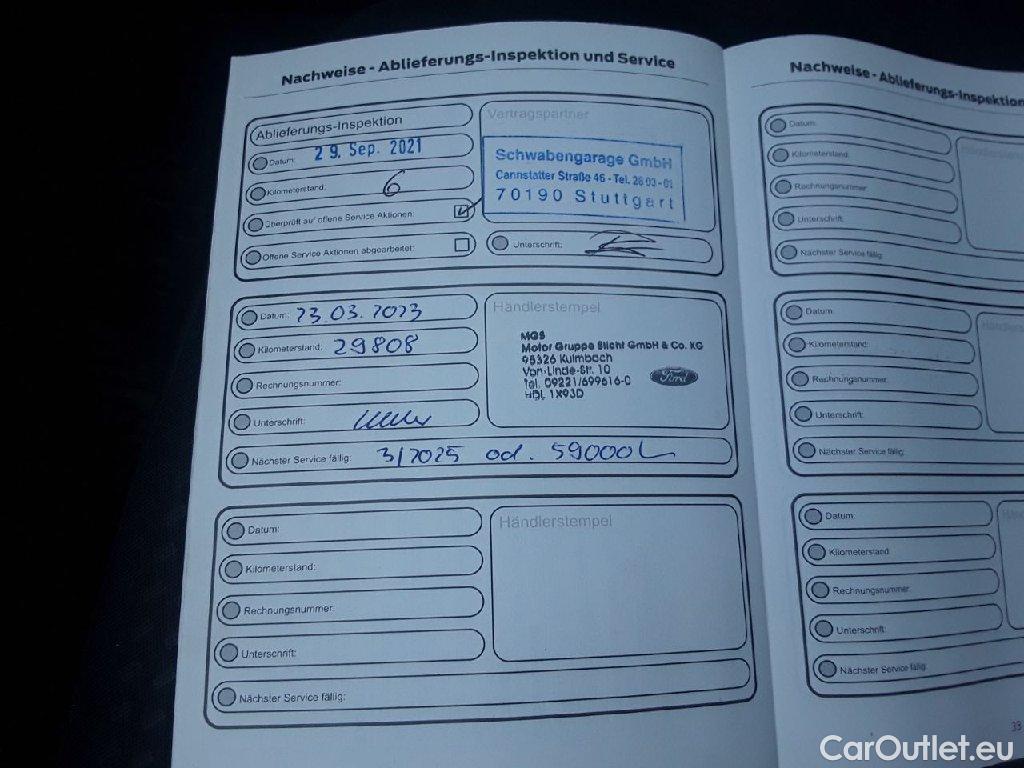 Nachweise - Ablieferungs-Inspektion und Service
Ablieferungs-Inspektion
Datum: 29. Sep. 2021
Kilometerstand: 6
Überprüft auf offene Service Aktionen:
Offene Service Aktionen abgearbeitet:
Vertragspartner
Schwabengarage GmbH
Cannstatter Straße 46 - Tel. 28 03 - 01
70190 Stuttgart
Unterschrift:
Datum: 23.03.2023
Kilometerstand: 29808
Rechnungsnummer:
Unterschrift:
Händlerstempel
MGS
Motor Gruppe Sticht GmbH & Co. KG
95326 Kulmbach
Von-Linde-Str. 10
Tel. 09221/699616-0
HDL 1X93D
Ford
Nächster Service fällig: 3/2025 od. 59000
Datum:
Kilometerstand:
Rechnungsnummer:
Unterschrift:
Händlerstempel
Nächster Service fällig:
Nachweise - Ablieferungs-Inspektion
Datum:
Kilometerstand:
Rechnungsnummer
Unterschrift:
Nächster Service fällig
Datum:
Kilometerstand:
Rechnungsnummer
Unterschrift:
Nächster Service fällig:
Datum
Kilometerstand
Rechnungsnummer
Unterschrift:
Nächster Service fällig
33
CarOutlet.eu